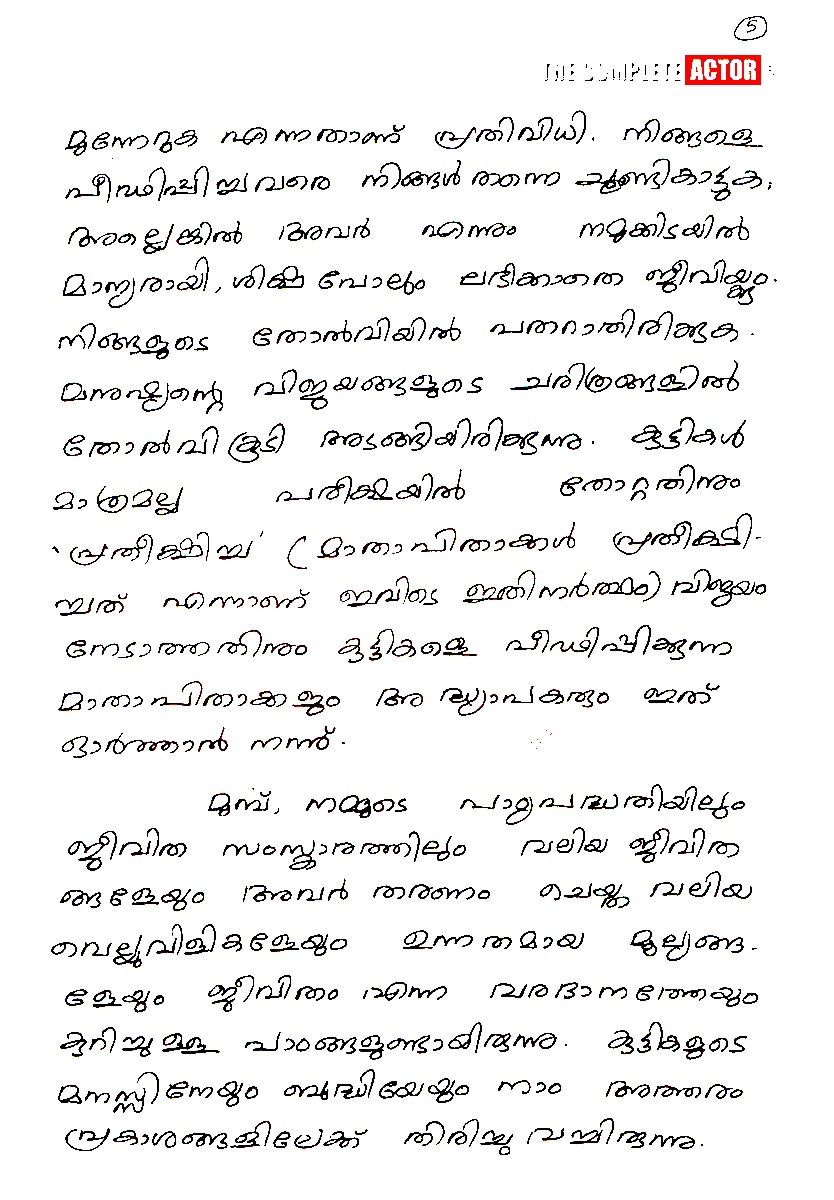 5
THE COMPLETE ACTOR
മുന്നേറുക എന്നതാണ് പ്രതിവിധി. നിങ്ങളെ
പീഢിപ്പിച്ചവരെ നിങ്ങൾ തന്നെ ചൂണ്ടികാട്ടുക,
അല്ലെങ്കിൽ അവർ എന്നും നമുക്കിടയിൽ
മാന്യരായി, ശിക്ഷ പോലും ലഭിക്കാതെ ജീവിയ്ക്കും.
നിങ്ങളുടെ തോൽവിയിൽ പതറാതിരിക്കുക.
മനുഷ്യന്റെ വിജയങ്ങളുടെ ചരിത്രങ്ങളിൽ
തോൽവി കൂടി അടങ്ങിയിരിക്കുന്നു. കുട്ടികൾ
മാത്രമല്ല പരീക്ഷയിൽ തോറ്റതിനും
'പ്രതീക്ഷിച്ച' (മാതാപിതാക്കൾ പ്രതീക്ഷി-
ച്ചത് എന്നാണ് ഇവിടെ ഇതിനർത്ഥം) വിജയം
നേടാത്തതിനും കുട്ടികളെ പീഢിപ്പിക്കുന്ന
മാതാപിതാക്കളും അദ്ധ്യാപകരും ഇത്
ഓർത്താൽ നന്ന്.
മുമ്പ്, നമ്മുടെ പാഠ്യപദ്ധതിയിലും
ജീവിത സംസ്കാരത്തിലും വലിയ ജീവിത
ങ്ങളേയും അവർ തരണം ചെയ്ത വലിയ
വെല്ലുവിളികളേയും ഉന്നതമായ മൂല്യങ്ങ-
ളേയും ജീവിതം എന്ന വരദാനത്തേയും
കുറിച്ചുള്ള പാഠങ്ങളുണ്ടായിരുന്നു. കുട്ടികളുടെ
മനസ്സിനേയും ബുദ്ധിയേയും നാം അത്തരം
പ്രകാശങ്ങളിലേക്ക് തിരിച്ചു വച്ചിരുന്നു.